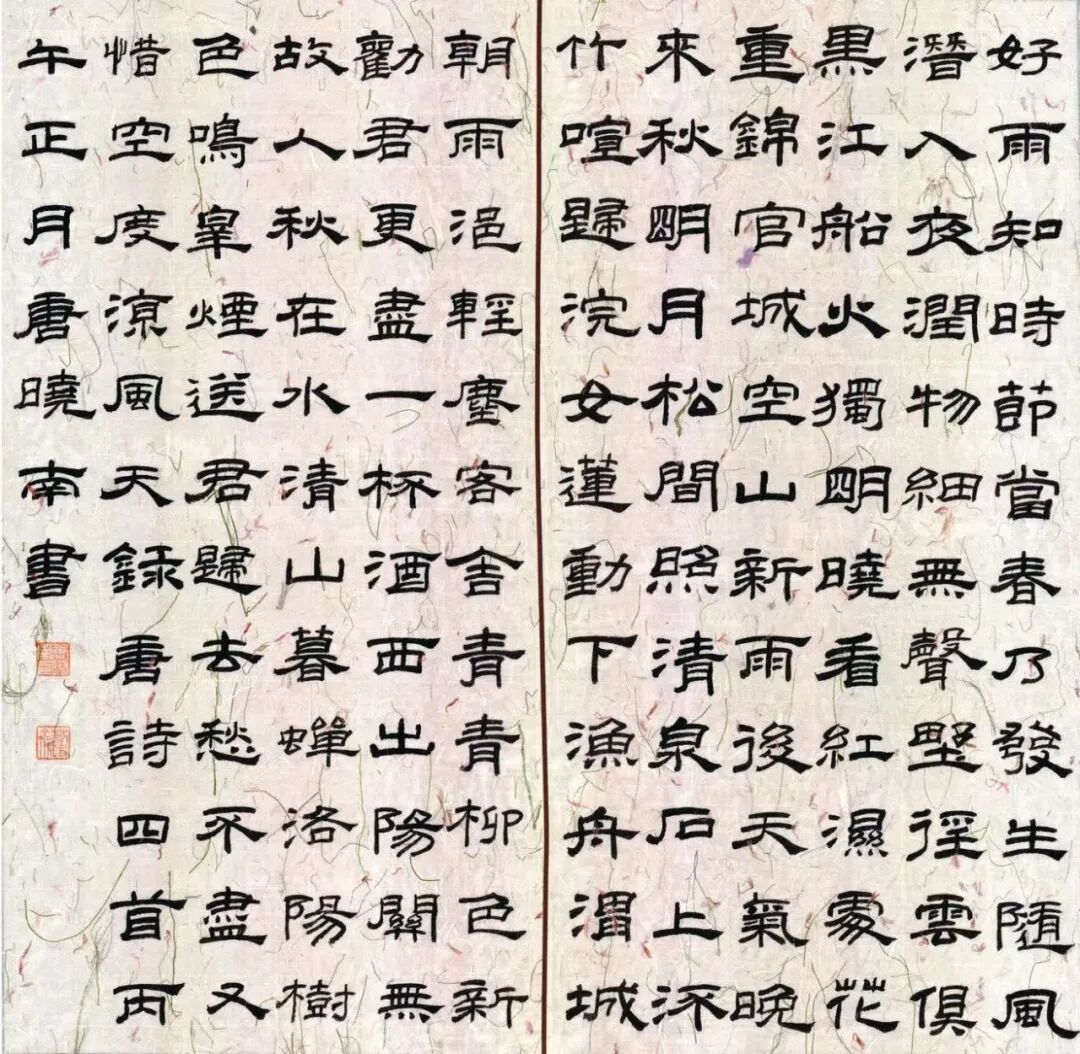 好雨知時節當春乃發生隨風
潛入夜潤物細無聲野徑雲俱
黑江船火獨明曉看紅濕處花
重錦官城空山新雨後天氣晚
來秋明月松間照清泉石上流
竹喧歸浣女蓮動下漁舟渭城
朝雨浥輕塵客舍青青柳色新
勸君更盡一杯酒西出陽關無
故人秋在水清山暮蟬洛陽樹
色鳴皋煙送君歸去愁不盡又
惜空度涼風天錄唐詩四首丙
午正月唐曉南書